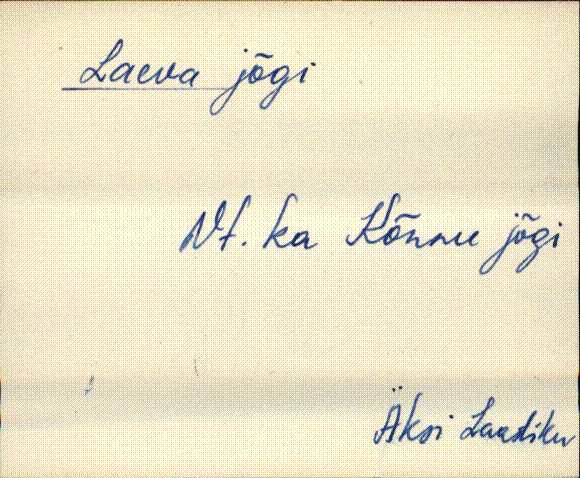 Laeva jõgi
Vt. ka Kõnnu jõgi
Äksi